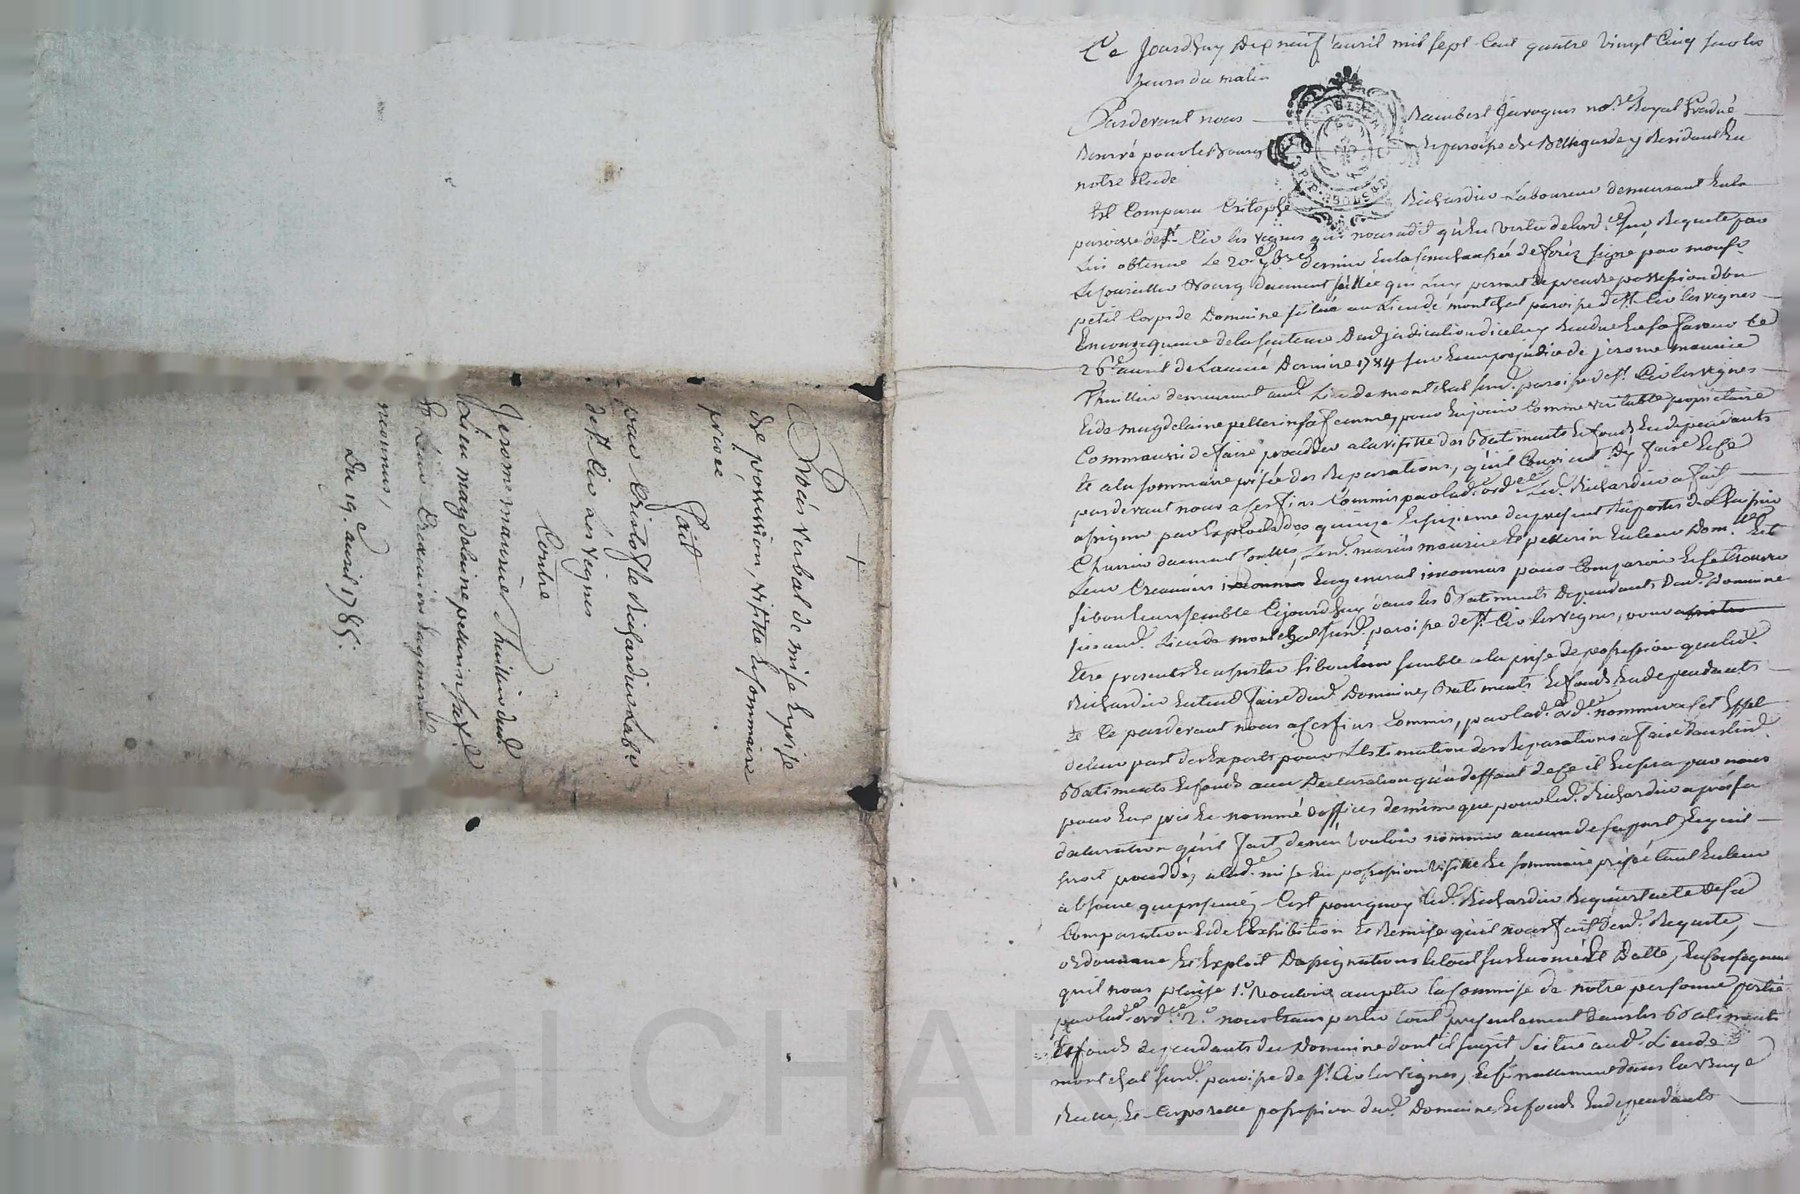 Procès verbal de mise en prise
de possession, visitte et sommaire
prisée
Fait
pour Cristophe Richardier Lab.r
de St Cir les Vignes
Contre
Jerome maurier Thuillier du d.
Lieu magdelaine pellerin sa f.e
Leurs Creanciers en general
inconnus,
Du 19.e avril 1785.
Ce Jourdhuy Dix neuf avril mil sept Cent quatre vingt Cinq sur les
heures du matin
Pardevant nous Rambert Javogues no.re Royal Gradué
Reservé pour le bourg et paroisse de Bellegarde y Residant en
notre Etude
Est Comparu Cristophe Richardier Laboureur demeurant en la
paroisse de St. Cir les vignes qui nous a dit qu'en vertu de l'ord.ce sur Requete par
lui obtenue Le 20 7bre dernier en la senechaussée de forez signé par monsr.
Le Conseiller Bourg duement scellée qui luy permet de prendre possession d'un
petit Corps de Domaine situé au Lieu de montchal paroisse de St. Cir les vignes
En consequence de la sentence D'adjudication d'iceluy Rendue en sa faveur le
26e avril de l'année Derniere 1784 sur le prejudice de jerome maurier
Thuillier demeurant aud. Lieu de montchal sud. paroisse de St. Cir les vignes
et de magdelaine pellerin sa femme, pour en jouir Comme veritable proprietaire
Comme aussi de faire proceder a la visitte des batiments et fonds en dependants
et a la sommaire prisée des Reparations, qu'il Convient D'y faire et ce
pardevant nous a ces fins Commis par lad. ord.ce Led. Richardier a fait
assigner par Exploits des quinze et seizieme du present
duement Contrôlés, Lesd. mariés maurier et pellerin en leur Dom.lle et
Leurs Creanciers en general inconnus pour Comparoir et se trouver
si bon leur semble Cejourdhuy dans les batiments Dependants Dud. Domaine
sis aud. Lieu de montchal sud. paroisse de St. Cir les vignes, pour
Etre presents et assister si bon leur semble a la prise de possession que led.
Richardier Entend faire Dud. Domaine, batiments et fonds en dependants
et Ce pardevant nous a ces fins Commis, par lad. ord.ce nommer a cet Effet
de leur part des Experts pour L'estimation des Reparations a faire dans lesd.
batiments et fonds avec Declaration qu'a deffaut de ce il en sera par nous
pour Eux pris et nommé d'office de même que pour led. Richardier apres la
declaration qu'il fait de n'en vouloir nommer aucun de sa part, Et qu'il
sera procedé, a lad. mise en possession visitte et sommaire prisée tant en leur
absence que presence, C'est pourquoy led. Richardier Requiert acte de sa
Comparution et de l'Exhibition et Remise qu'il nous fait Desd. Requete,
ordonnance et Exploit D'assignations le tout sus enoncés et Datté, En Consequence
qu'il nous plaise 1.o Vouloir accepter la Commise de notre personne portée
par lad. ord.ce 2.o nous transporter tout presentement dans les batiments
et fonds dependants du Domaine dont il s'agit Situé aud. Lieu de
montchal sud. paroisse de St. Cir les vignes, et finallement dans la vraye
Reelle, et Corporelle possession dud. Domaine, et fonds En dependants
Pascal CHARETTON